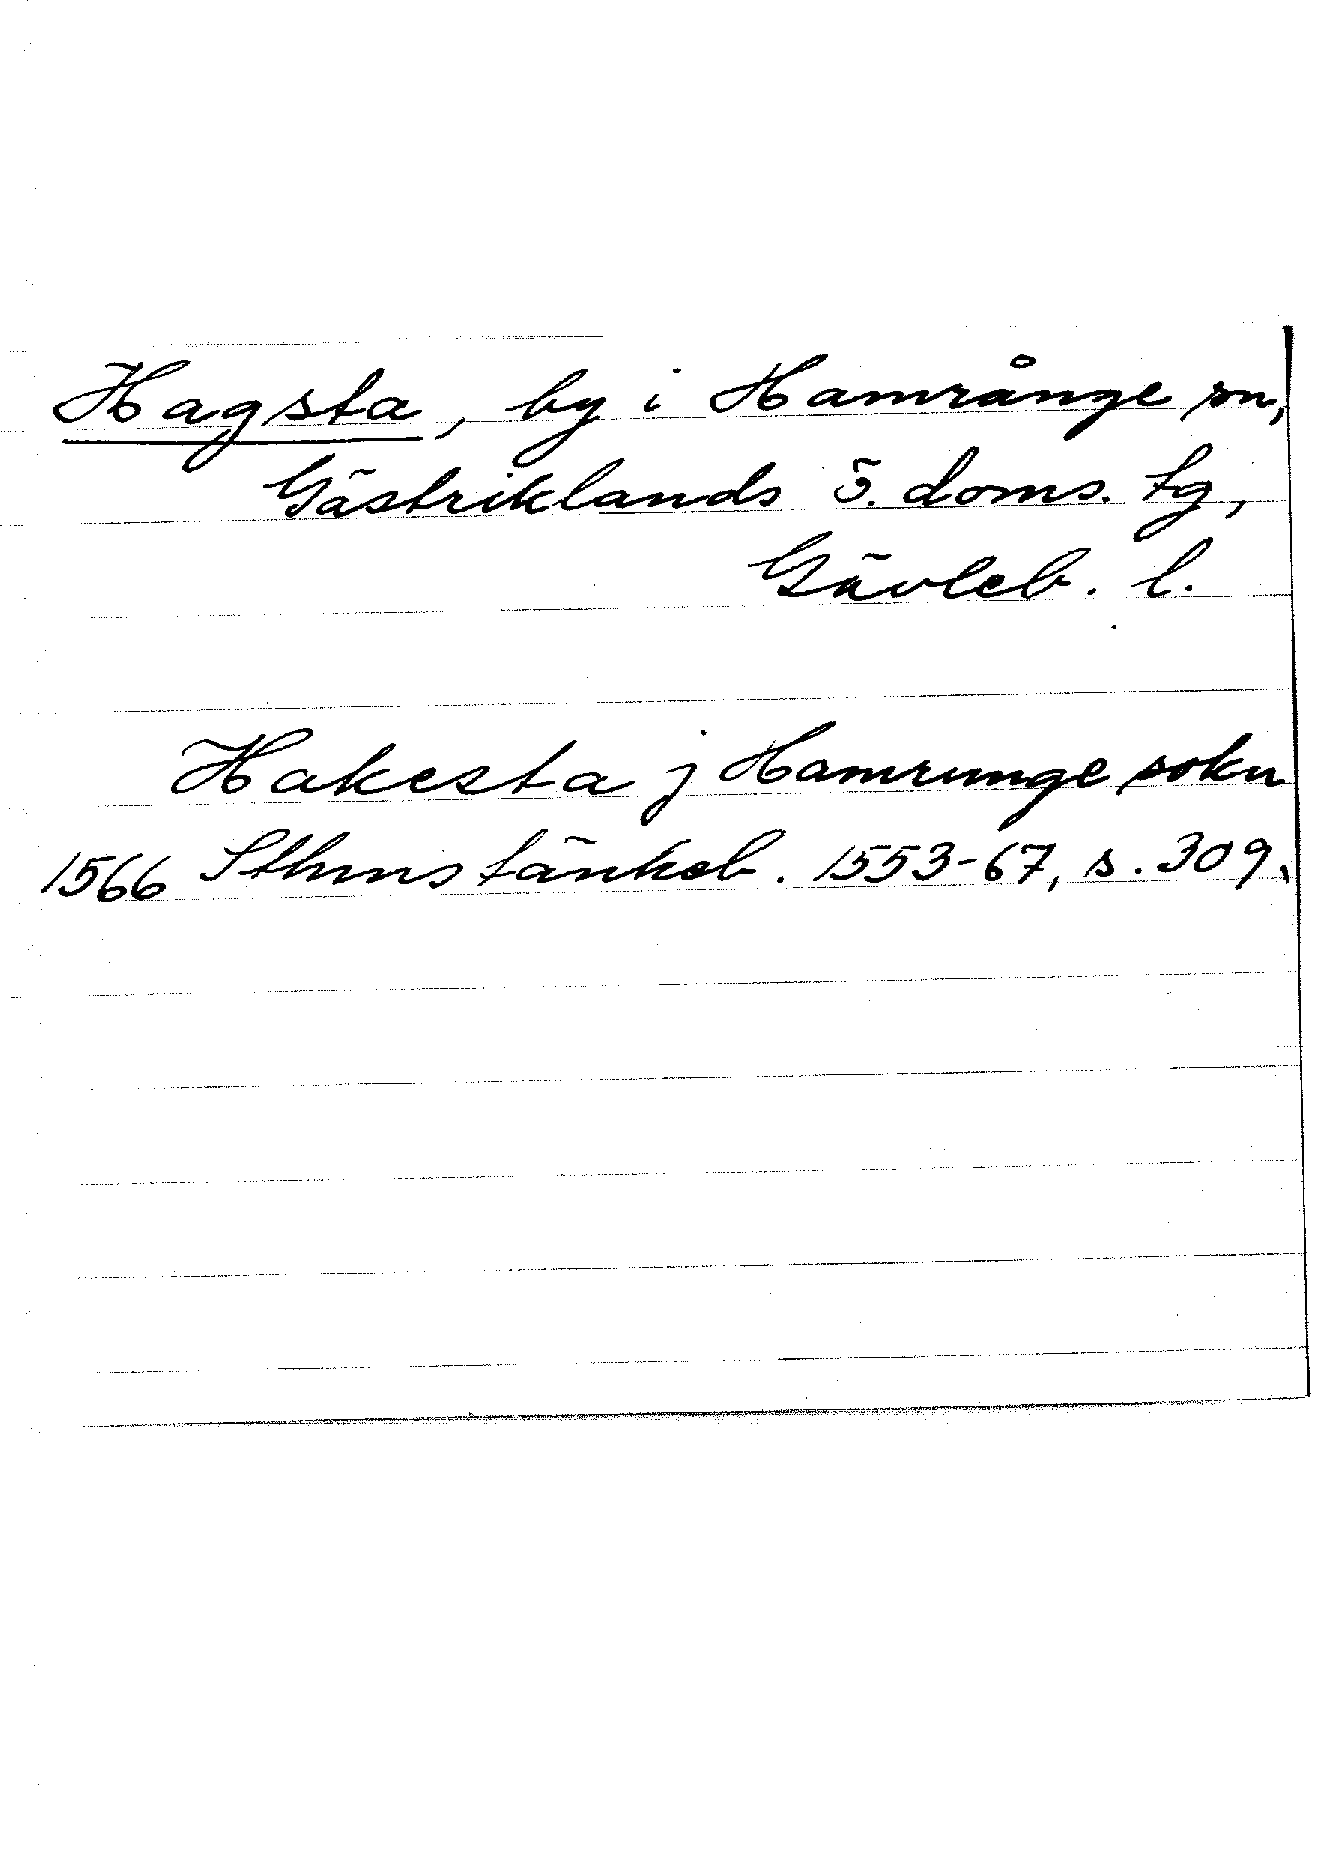 Hagsta, by i Hamrånge sn,
Gästriklands ö. doms. tg,
Gävleb. l.
Hakesta j Hamrunge sokn
1566 Sthms tänkeb. 1553-67, s. 309.